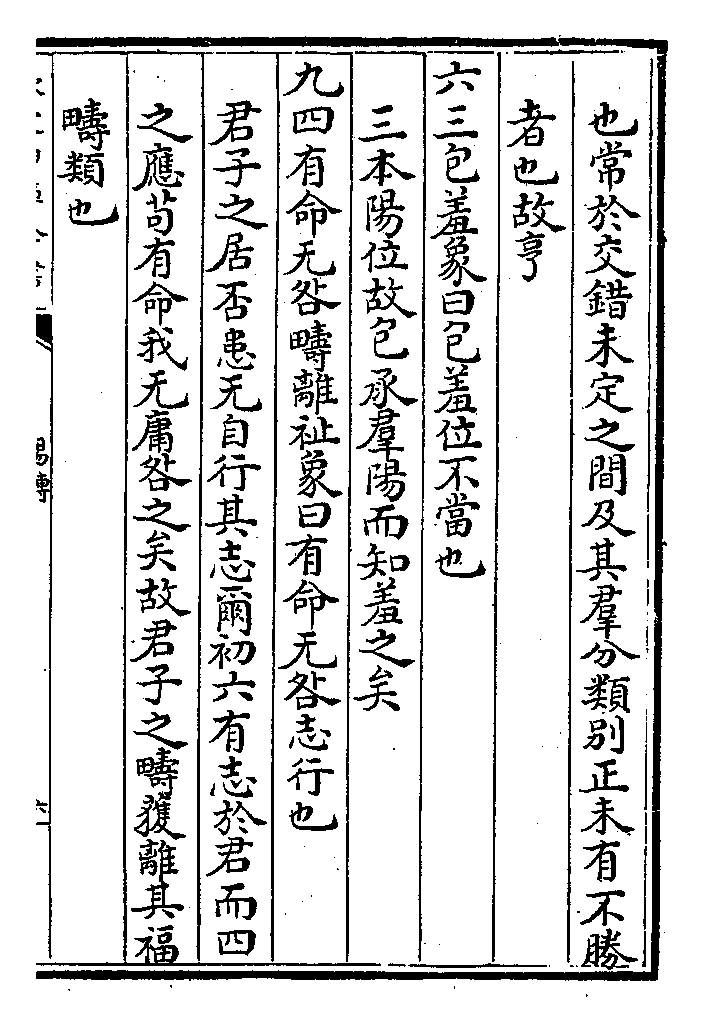 也常於交錯未定之間及其羣分類别正未有不勝
者也故亨
六三包羞象曰包羞位不當也
三本陽位故包承羣陽而知羞之矣
九四有命无咎疇離祉象曰有命无咎志行也
君子之居否患无自行其志爾初六有志於君而四
之應苟有命我无庸咎之矣故君子之疇獲離其福
疇類也
易傳